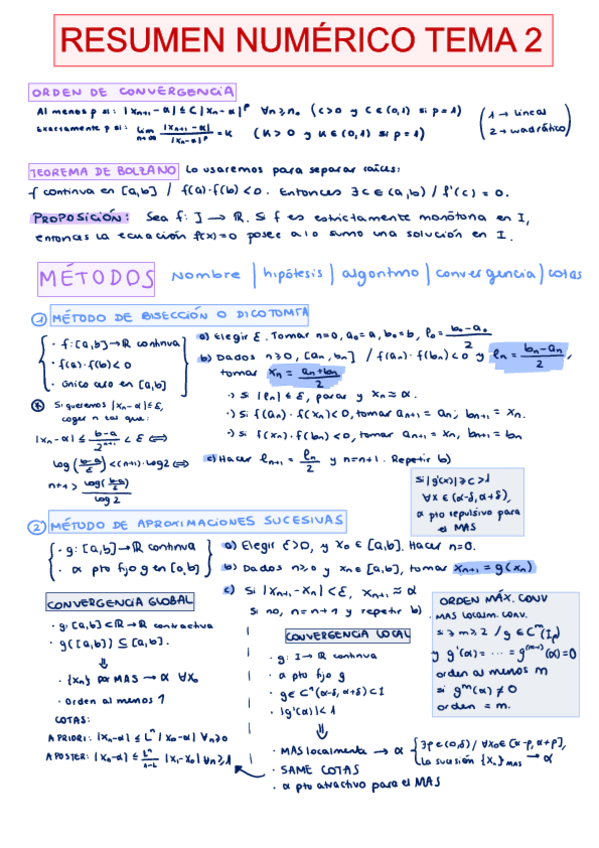 RESUMEN NUMÉRICO TEMA 2
ORDEN DE CONVERGENCIA
Al menos p si: |xₙ₊₁ - α| ≤ C|xₙ - α|ᵖ ∀n ≥ n₀ (C>0 y C∈(0,1) si p=1)
Exactamente p si: lim n→∞ |xₙ₊₁ - α| / |xₙ - α|ᵖ = K (K>0 y K∈(0,1) si p=1)
(1 → lineal
2 → cuadrático)
TEOREMA DE BOLZANO Lo usaremos para separar raíces:
f continua en [a,b] / f(a)·f(b) < 0. Entonces ∃c∈(a,b) / f'(c) = 0.
PROPOSICIÓN: Sea f: J → ℝ. Si f es estrictamente monótona en I,
entonces la ecuación f(x)=0 posee a lo sumo una solución en I.
MÉTODOS Nombre | hipótesis | algoritmo | convergencia | cotas
① MÉTODO DE BISECCIÓN O DICOTOMÍA
· f: [a,b] → ℝ continua
· f(a)·f(b) < 0
· único cero en [a,b]
a) Elegir ε. Tomar n=0, a₀=a, b₀=b, ℓ₀ = (b₀-a₀)/2
b) Dados n≥0, [aₙ,bₙ] / f(aₙ)·f(bₙ)<0 y ℓₙ = (bₙ-aₙ)/2,
tomar xₙ = (aₙ+bₙ)/2
·) Si |ℓₙ| ≤ ε, parar y xₙ ≈ α.
·) Si f(aₙ)·f(xₙ)<0, tomar aₙ₊₁ = aₙ; bₙ₊₁ = xₙ.
·) Si f(xₙ)·f(bₙ)<0, tomar aₙ₊₁ = xₙ, bₙ₊₁ = bₙ
c) Hacer ℓₙ₊₁ = ℓₙ/2 y n=n+1. Repetir b)
Si queremos |xₙ-α| ≤ ε,
coger n tal que:
|xₙ-α| ≤ (b-a)/2ⁿ⁺¹ < ε ⟺
log((b-a)/ε) < (n+1)·log2 ⟺
n+1 > log((b-a)/ε) / log 2
Si |g'(x)| ≥ c > 1
∀x∈(α-δ, α+δ),
α pto repulsivo para
el MAS
② MÉTODO DE APROXIMACIONES SUCESIVAS
· g: [a,b] → ℝ continua
· α pto fijo g en [a,b]
a) Elegir ε>0, y x₀ ∈ [a,b]. Hacer n=0.
b) Dados n≥0 y xₙ∈[a,b], tomar xₙ₊₁ = g(xₙ)
c) Si |xₙ₊₁ - xₙ| < ε, xₙ₊₁ ≈ α
Si no, n=n+1 y repetir b)
CONVERGENCIA GLOBAL
· g: [a,b]⊂ℝ → ℝ contractiva
· g([a,b]) ⊆ [a,b].
⇓
· {xₙ} por MAS → α ∀x₀
· Orden al menos 1
COTAS:
A PRIORI: |xₙ-α| ≤ Lⁿ |x₀-α| ∀n≥0
A POSTER: |xₙ-α| ≤ Lⁿ/(1-L) |x₁-x₀| ∀n≥1
CONVERGENCIA LOCAL
· g: I → ℝ continua
· α pto fijo g
· g∈C¹(α-δ, α+δ) ⊂ I
· |g'(α)| < 1
⇓
· MAS localmente → α {∃ρ∈(0,δ) / ∀x₀∈[α-ρ, α+ρ],
la sucesión {xₙ}MAS → α
· SAME COTAS
· α pto atractivo para el MAS
ORDEN MÁX. CONV
MAS localm. conv.
si ∃ m≥2 / g∈Cᵐ(I)
y g'(α) = ··· = g⁽ᵐ⁻¹⁾(α) = 0
orden al menos m
si gᵐ(α) ≠ 0
orden = m.